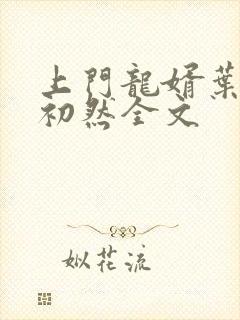 上門龍婿葉
初然全文
姒花流